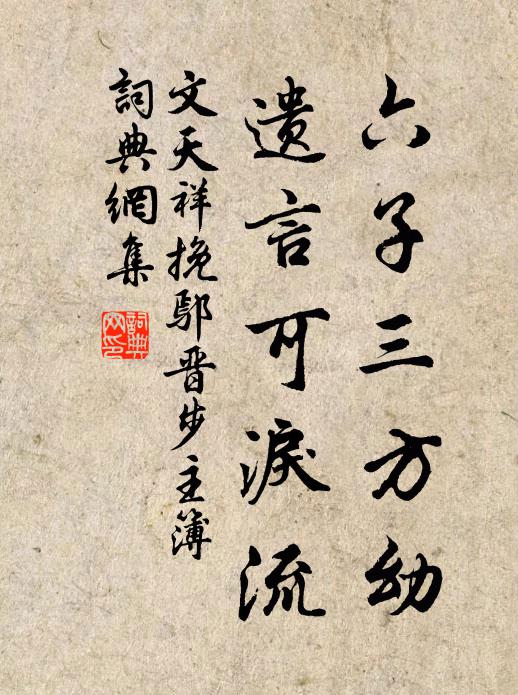 六子三方幼
遗言可淚流
文天祥挽鄢晋步主簿
詞典網集
詞典
网印